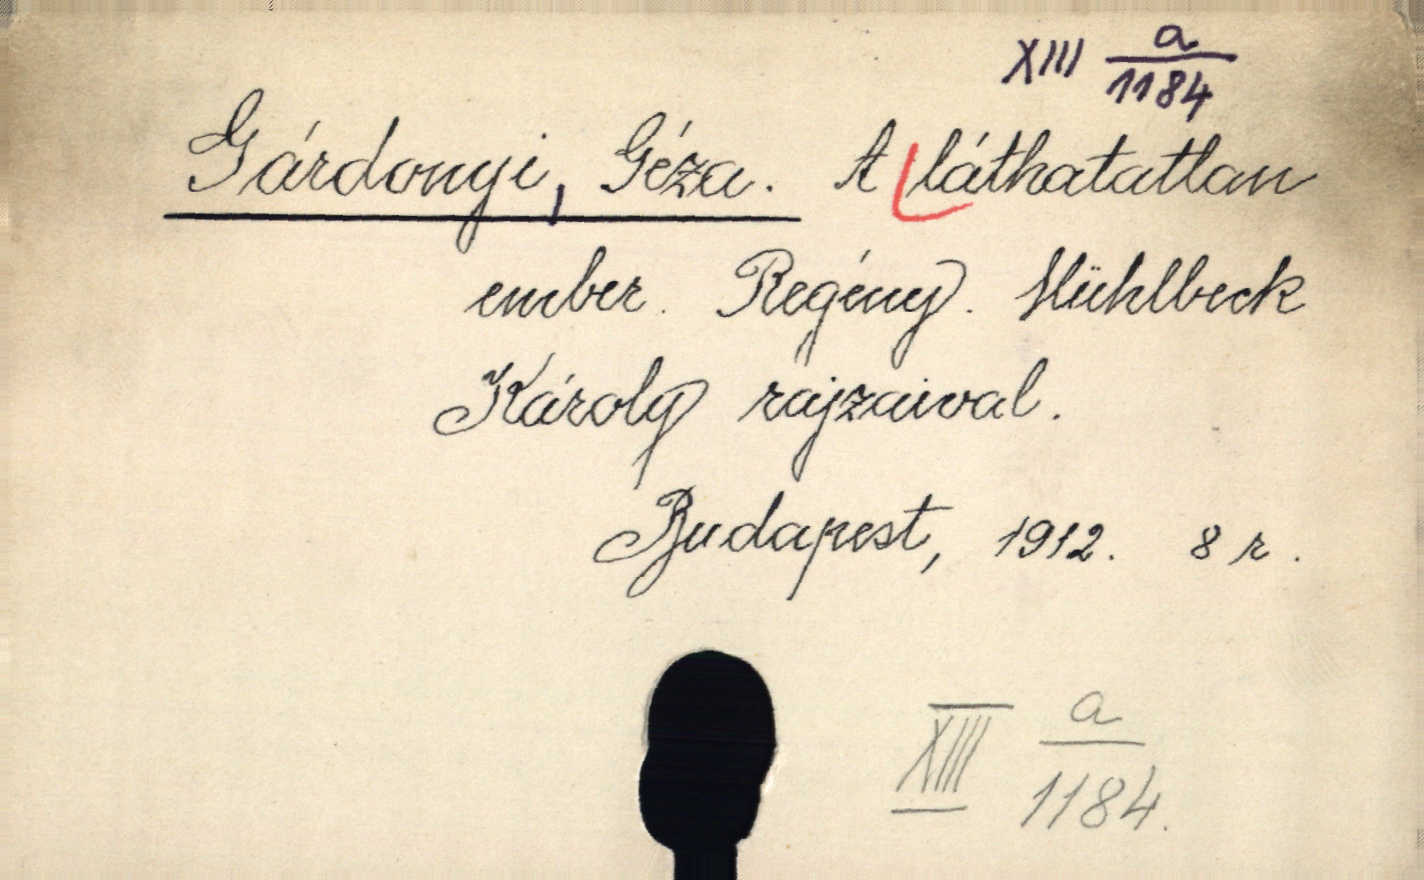 XIII a
1184
Gárdonyi, Géza. A láthatatlan
ember. Regény. Mühlbeck
Károly rajzaival.
Budapest, 1912. 8 r.
XIII a
1184.